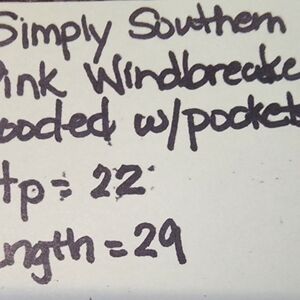 Simply Southern
Pink Windbreaker
Hooded w/pockets
ptp = 22
Length = 29